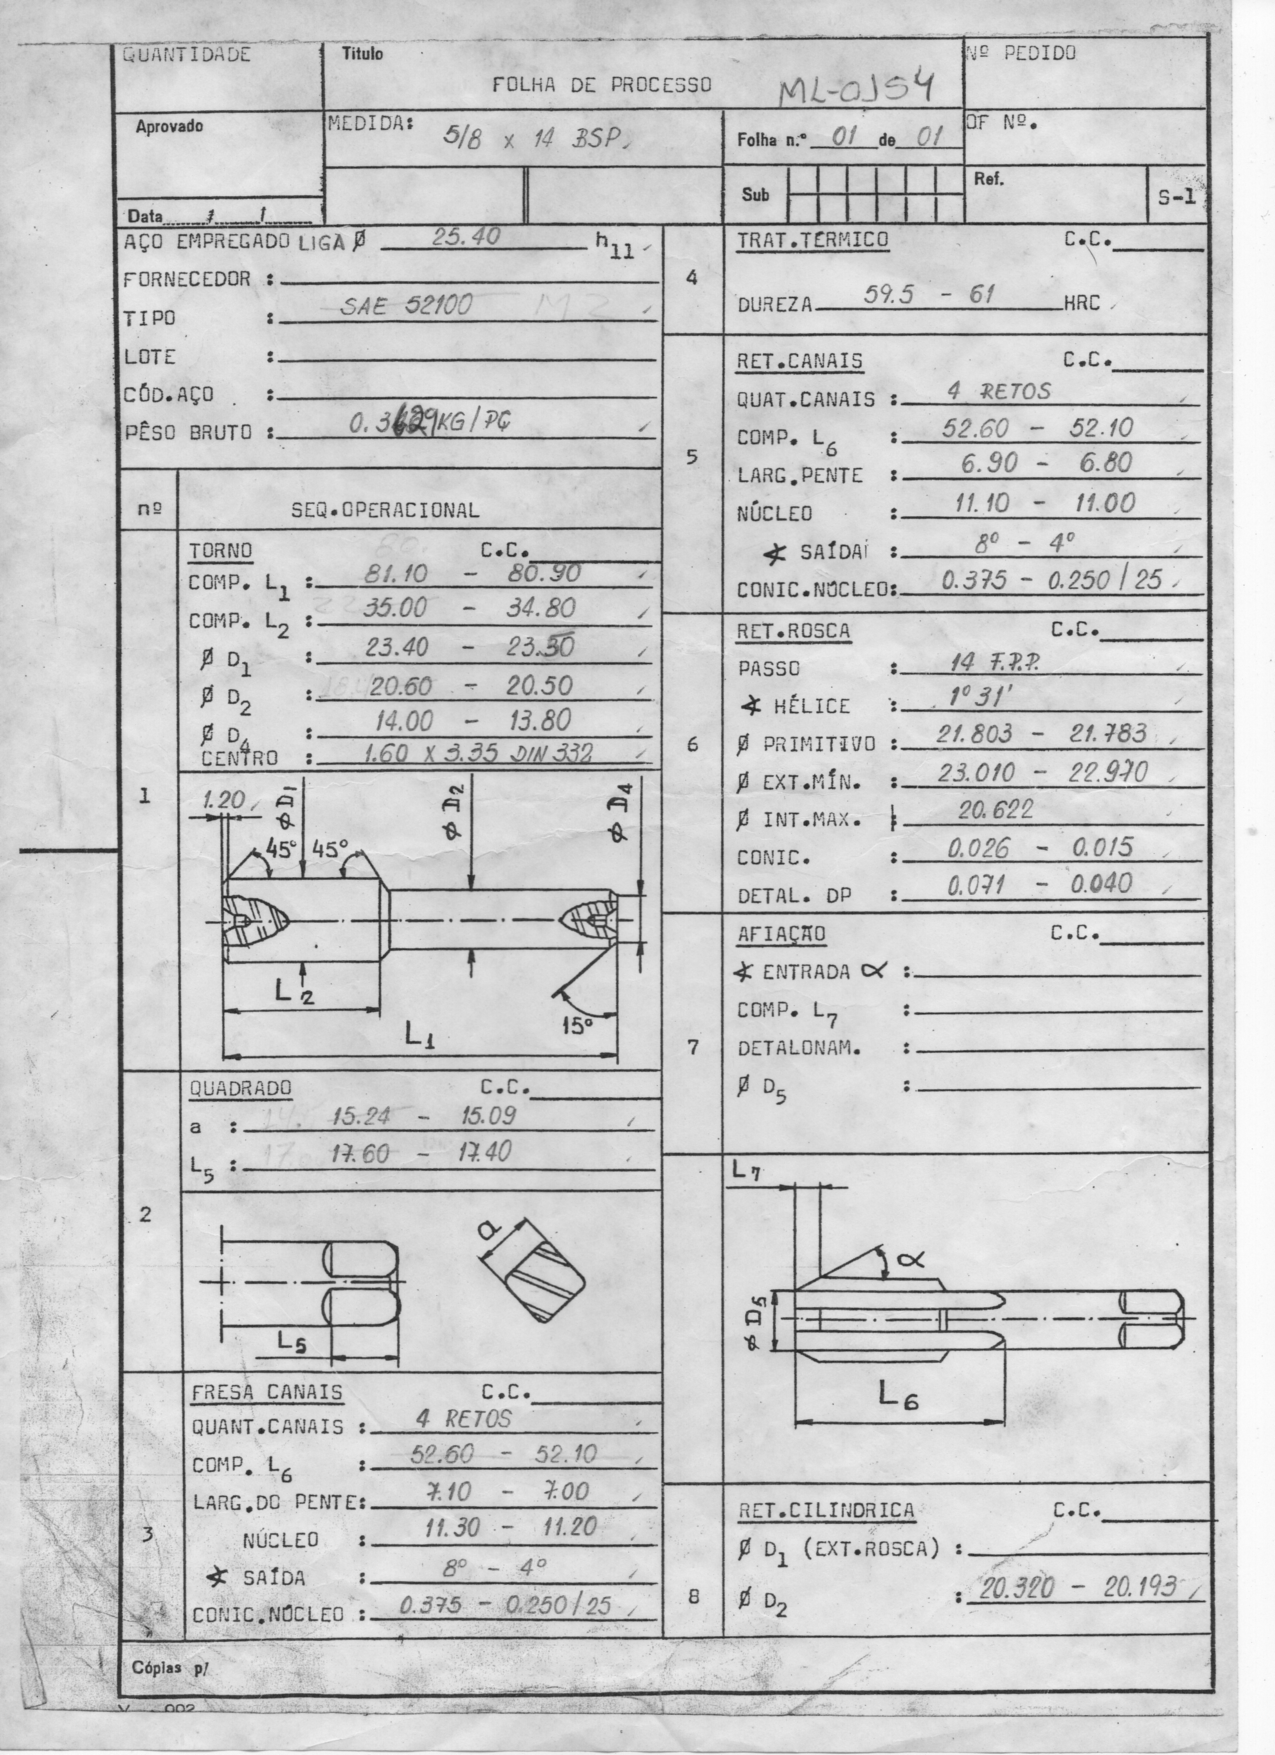 QUANTIDADE
Titulo
FOLHA DE PROCESSO
ML-0154
Nº PEDIDO
Aprovado
MEDIDA: 5/8 x 14 BSP
Folha n.º 01 de 01
OF Nº.
Data / /
Sub
Ref.
S-1
AÇO EMPREGADO LIGA Ø 25.40 h11
FORNECEDOR :
TIPO : SAE 52100 M2
LOTE :
CÓD.AÇO :
PÊSO BRUTO : KG/PÇ
nº
SEQ.OPERACIONAL
1
TORNO C.C.
COMP. L1 : 81.10 - 80.90
COMP. L2 : 35.00 - 34.80
Ø D1 : 23.40 - 23.30
Ø D2 : 20.60 - 20.50
Ø D4 : 14.00 - 13.80
CENTRO : 1.60 X 3.35 DIN 332
1.20
Ø D1
Ø D2
Ø D4
45° 45°
L2
15°
L1
2
QUADRADO C.C.
a : 15.24 - 15.09
L5 : 17.60 - 17.40
a
L5
3
FRESA CANAIS C.C.
QUANT.CANAIS : 4 RETOS
COMP. L6 : 52.60 - 52.10
LARG.DO PENTE: 7.10 - 7.00
NÚCLEO : 11.30 - 11.20
∢ SAÍDA : 8° - 4°
CONIC.NÚCLEO : 0.375 - 0.250/25
4
TRAT.TÉRMICO C.C.
DUREZA 59.5 - 61 HRC
5
RET.CANAIS C.C.
QUAT.CANAIS : 4 RETOS
COMP. L6 : 52.60 - 52.10
LARG.PENTE : 6.90 - 6.80
NÚCLEO : 11.10 - 11.00
∢ SAÍDA : 8° - 4°
CONIC.NÚCLEO: 0.375 - 0.250/25
6
RET.ROSCA C.C.
PASSO : 14 F.P.P.
∢ HÉLICE : 1° 31'
Ø PRIMITIVO : 21.803 - 21.783
Ø EXT.MÍN. : 23.010 - 22.970
Ø INT.MAX. : 20.622
CONIC. : 0.026 - 0.015
DETAL. DP : 0.071 - 0.040
7
AFIAÇÃO C.C.
∢ ENTRADA α :
COMP. L7 :
DETALONAM. :
Ø D5 :
L7
α
Ø D5
L6
8
RET.CILINDRICA C.C.
Ø D1 (EXT.ROSCA) :
Ø D2 : 20.320 - 20.193
Cópias p/